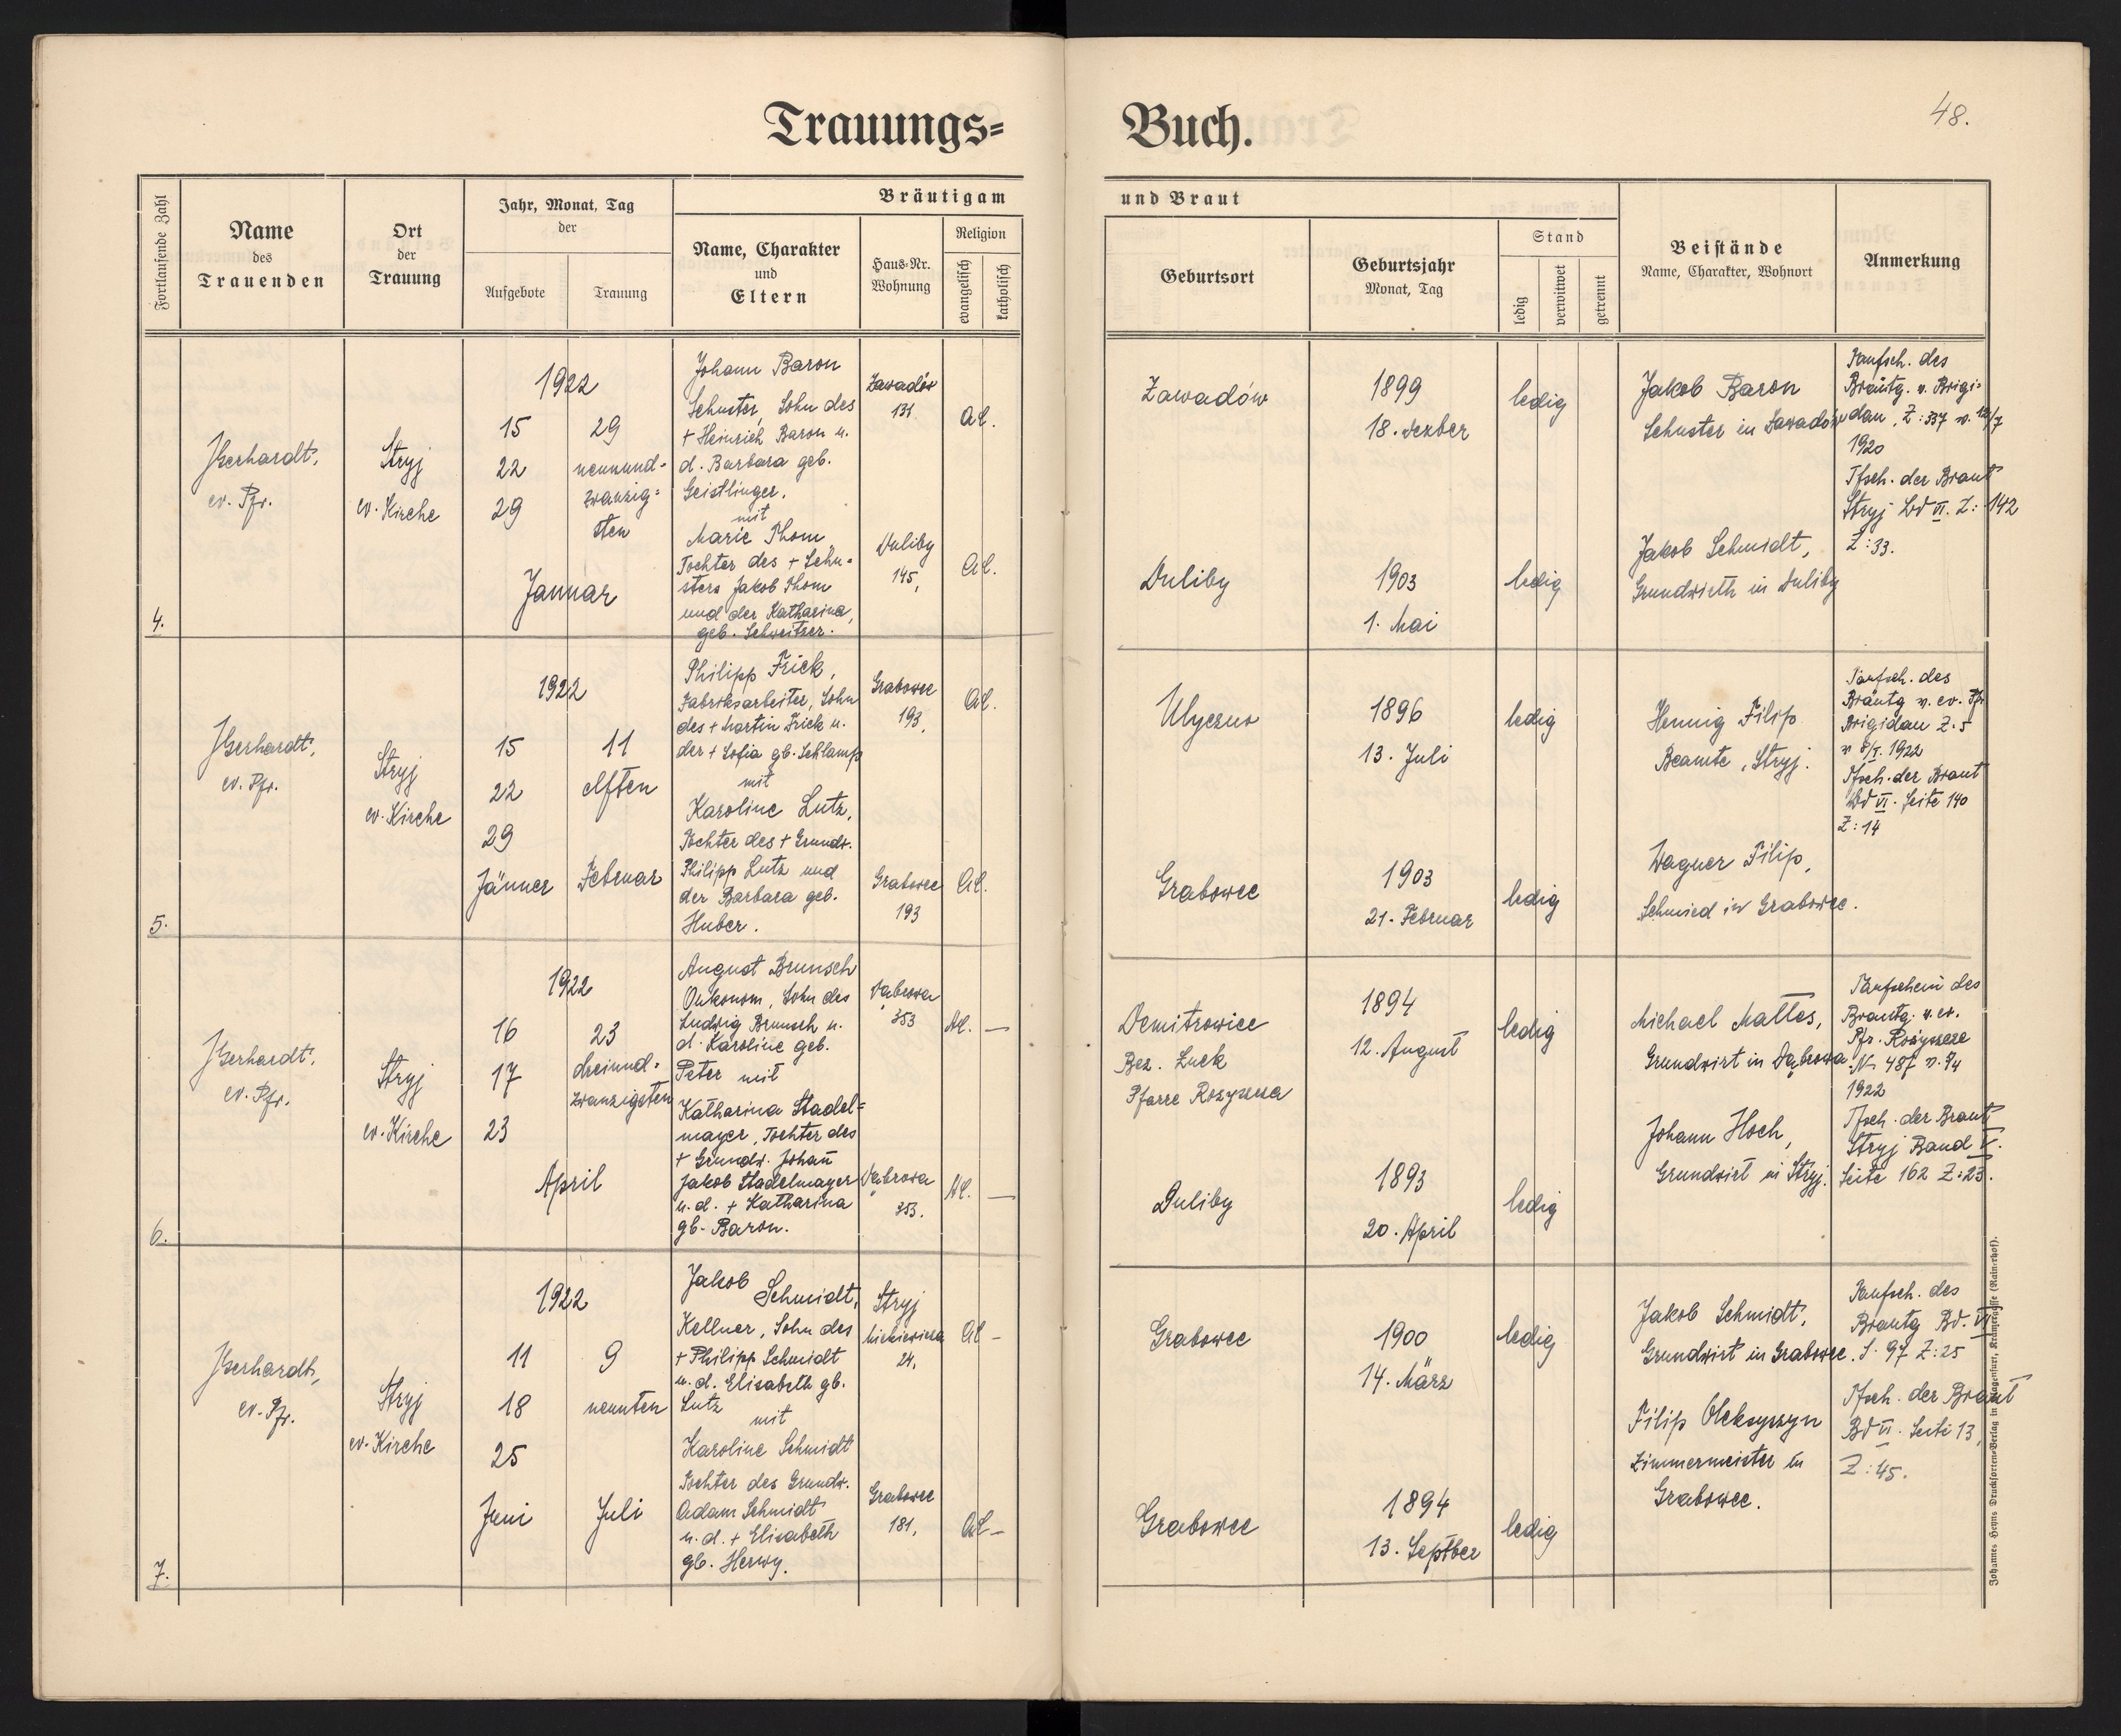 Trauungs=
Buch.
48.
Fortlaufende Zahl
Name
des
Trauenden
Ort
der
Trauung
Jahr, Monat, Tag
der
Aufgebote
Trauung
Bräutigam
Name, Charakter
und
Eltern
Haus-Nr.
Wohnung
Religion
evangelisch
katholisch
und Braut
Geburtsort
Geburtsjahr
Monat, Tag
Stand
ledig
verwitwet
getrennt
Beistände
Name, Charakter, Wohnort
Anmerkung
4.
JGerhardt,
ev. Pfr.
Stryj
ev. Kirche
1922
15
22
29
29
neunund-
zwanzig=
sten
Januar
Johann Baron
Schuster, Sohn des
+ Heinrich Baron u.
d. Barbara geb.
Geistlinger.
mit
Marie Thom
Tochter des + Schu=
sters Jakob Thom
und der Katharina,
geb. Schweitzer.
Zawadów
AC.
Duliby
145,
AC.
Zawadów
1899
18. Dezber
ledig
Duliby
1903
1. Mai
ledig
Jakob Baron
Schuster in Zawadów
Jakob Schmidt,
Grundwirth in Duliby
Taufsch. des
Bräutg. v. Brigi=
dau, Z: 337 v. 12/7
1920
Tfsch. der Braut
Stryj Bd VI. Z: 142
Z: 33.
5.
JGerhardt,
ev. Pfr.
Stryj
ev. Kirche
1922
15
22
29
Jänner
11
elften
Februar
Philipp Frick,
Fabriksarbeiter, Sohn
des + Martin Frick u.
der + Sofia gb. Schlamp
mit
Karoline Lutz,
Tochter des + Grundw.
Philipp Lutz und
der Barbara geb.
Huber.
Grabowce
193,
AC.
Grabowce
193
AC.
Ulyczno
1896
13. Juli
ledig
Grabowce
1903
21. Februar
ledig
Hennig Filip
Beamte, Stryj.
Wagner Filip,
Schmied in Grabowce.
Taufsch. des
Bräutg v. ev. Pfr
Brigidau Z. 5
v 8/I. 1922
Tfsch. der Braut
Bd VI. Seite 140
Z: 14
6.
JGerhardt,
ev. Pfr.
Stryj
ev. Kirche
1922
16
17
23
23
dreiund=
zwanzigsten
April
August Brunsch
Oekonom, Sohn des
Ludwig Brunsch u.
d. Karoline geb.
Peter mit
Katharina Stadel=
mayer, Tochter des
+ Grundw. Johañ
Jakob Stadelmayer
u. d. + Katharina
gb. Baron.
Dąbrowa
353
AC. —
Dąbrowa
353.
AC. —
Demitrowice
Bez. Luck
Pfarre Rozyszcza
1894
12. August
ledig
Duliby
1893
20. April
ledig
Michael Mattes,
Grundwirt in Dąbrowa.
Johann Hoch,
Grundwirt in Stryj.
Taufschein des
Brautg. v. ev.
Pfr. Rożyszcze
N 487 v. 7/4
1922
Tfsch. der Braut
Stryj Band V.
Seite 162 Z: 23.
7.
JGerhardt,
ev. Pfr.
Stryj
ev. Kirche
1922
11
18
25
Juni
9
neunten
Juli
Jakob Schmidt,
Kellner, Sohn des
+ Philipp Schmidt
u. d. Elisabeth gb.
Lutz
mit
Karoline Schmidt
Tochter des Grundw.
Adam Schmidt
u. d. + Elisabeth
gb. Herwy.
Stryj
Mickiewicza
24,
AC —
Grabowce
181,
AC —
Grabowce
1900
14. März
ledig
Grabowce
1894
13. Septber
ledig
Jakob Schmidt,
Grundwirt in Grabowce.
Filip Oleksyszyn
Zimmermeister in
Grabowce.
Taufsch. des
Brautg Bd. VI
S. 97 Z: 25
Tfsch. der Braut
Bd VI. Seite 13,
Z: 45.
Johannes Heyns Drucksorten-Verlag in Klagenfurt, Kramergasse (Rainerhof).